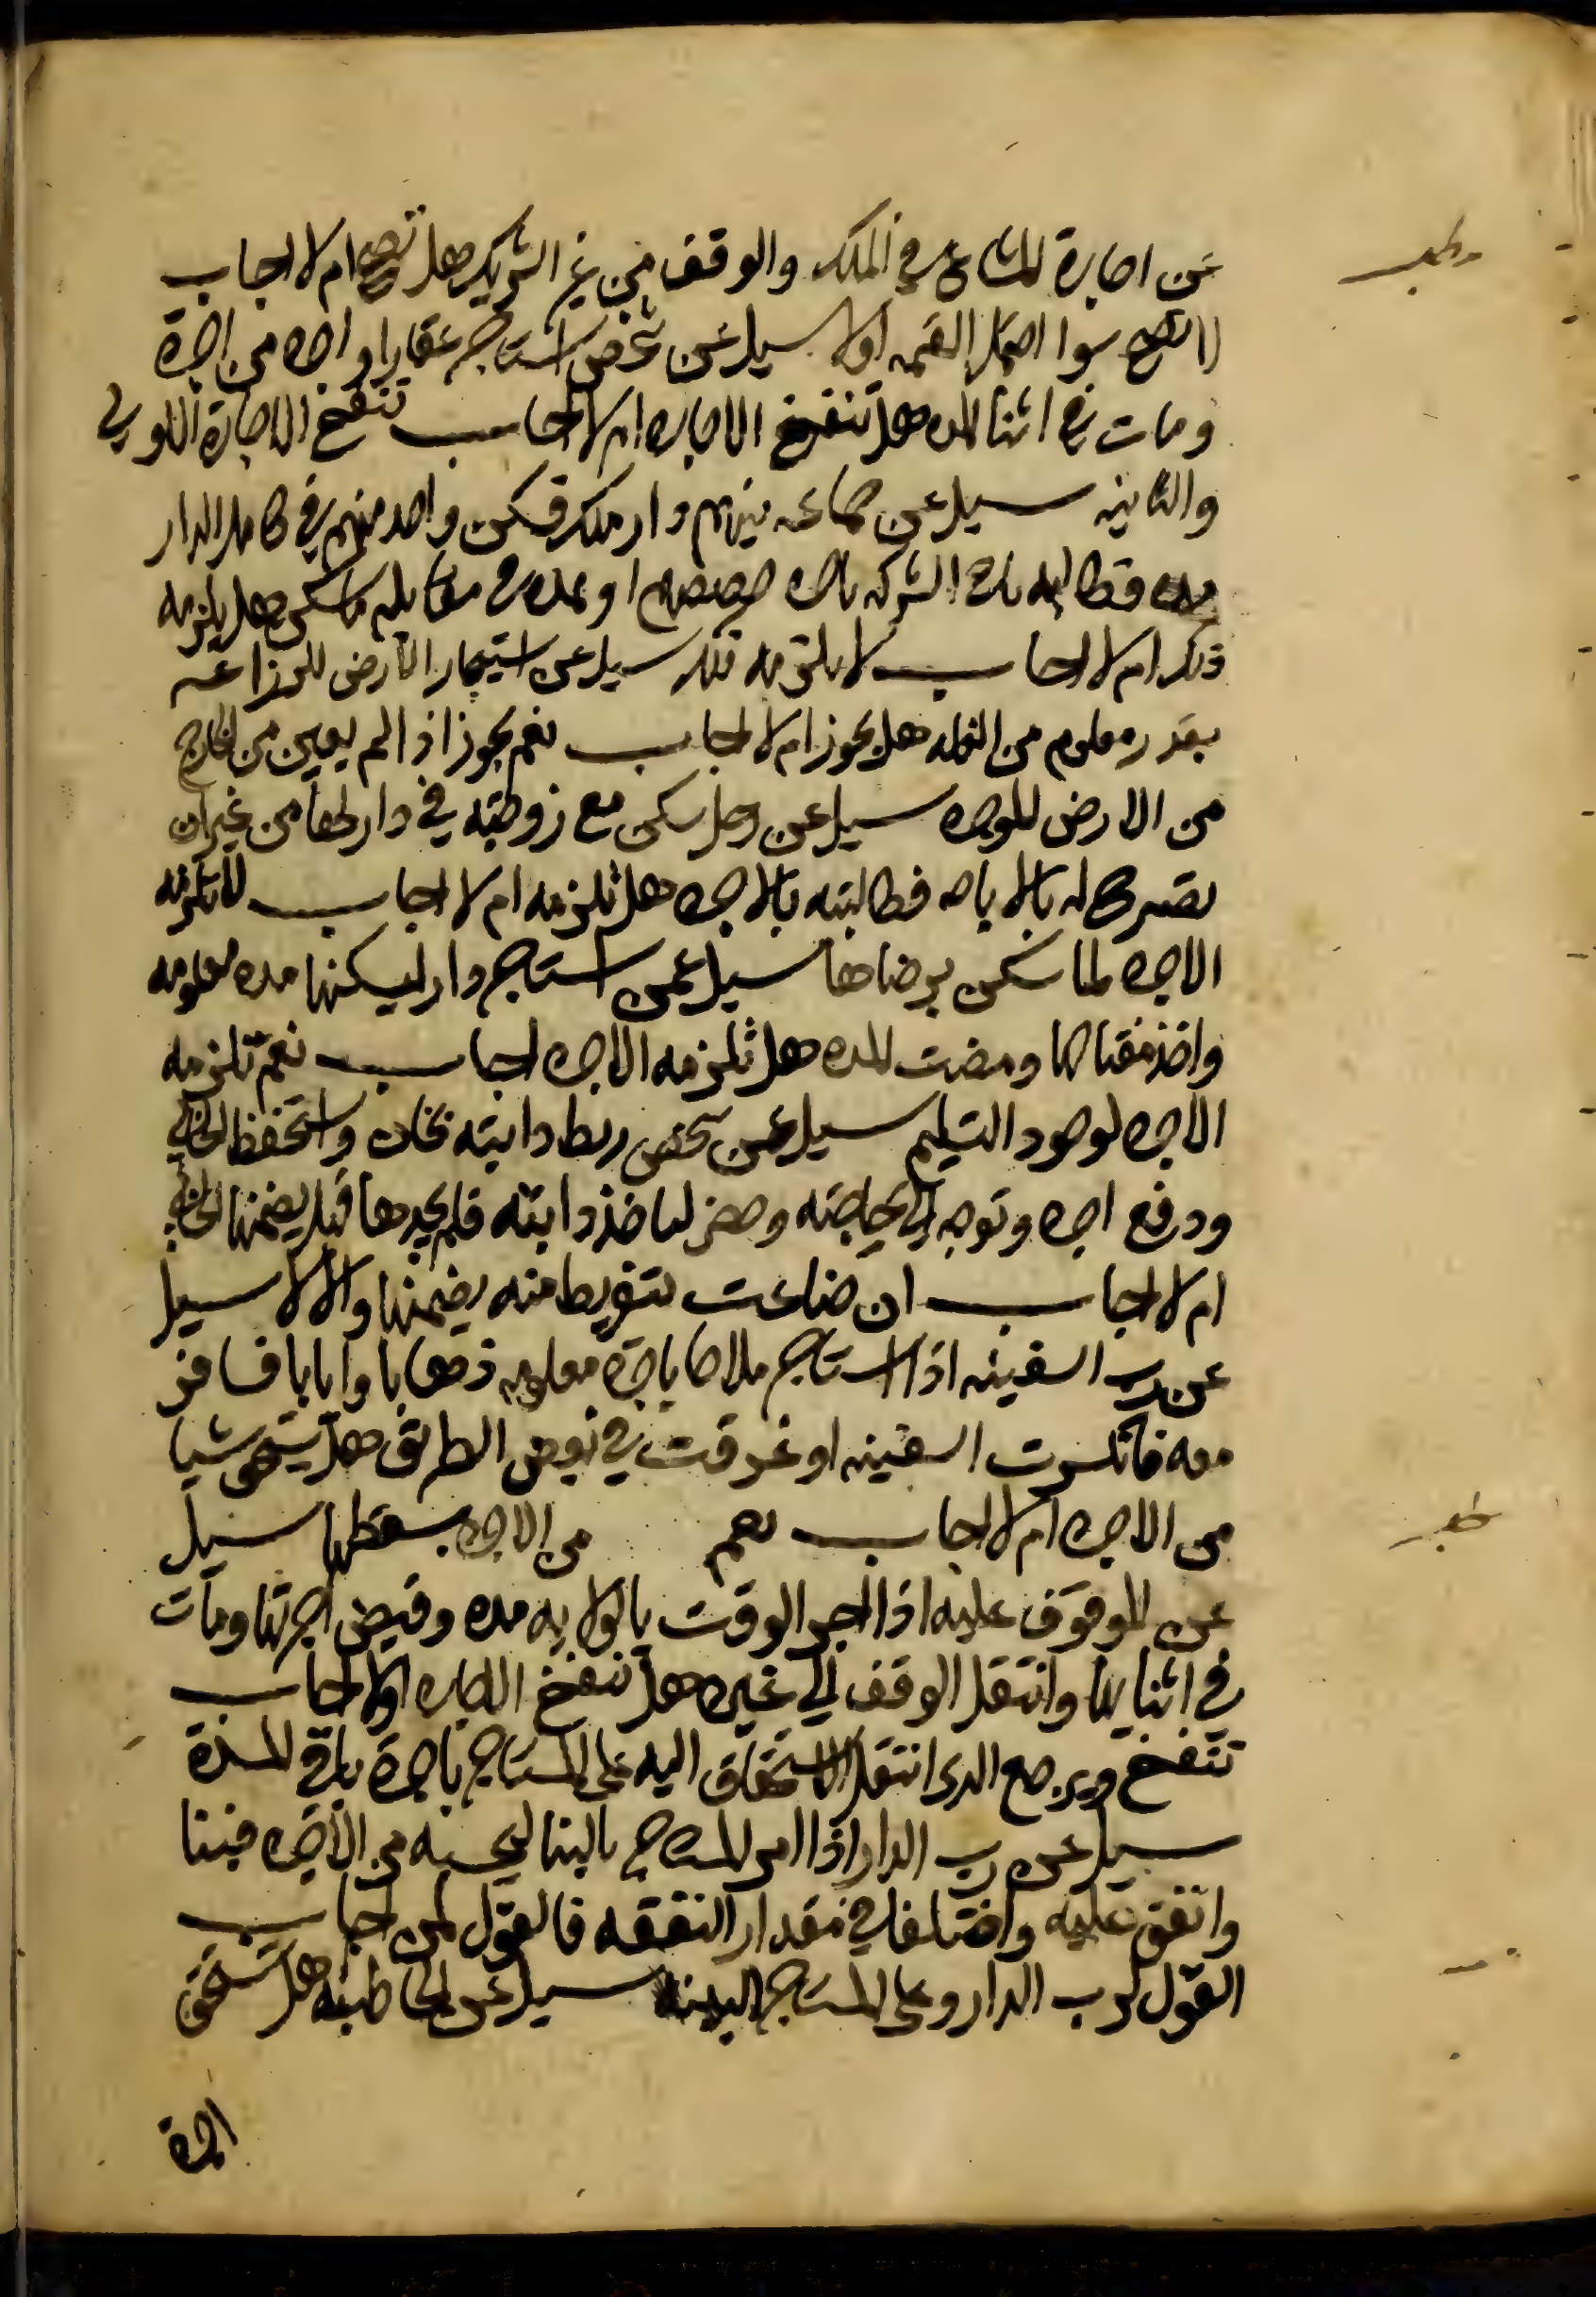 عن اجارة المشاع في الملك والوقف من غير الشريك هل تصح ام لا اجاب
لا تصح سوا احتمل القسمه اولا سيل عن شخص استاجر عقارا واجره من اجرة
ومات في اثنا المده هل تنفسخ الاجاره ام لا اجاب تنفسخ الاجارة الاولى
والثانيه سيل عن جماعه بينهم دار ملك فسكن واحد منهم في كامل الدار
مده فطالبه باقي الشركه باجره حصصهم او بمده في مقابله ما سكن هل يلزمه
ذلك ام لا اجاب لا يلزمه ذلك سيل عن استيجار الارض للزراعه
بقدر معلوم من الغله هل يجوز ام لا اجاب نعم يجوز اذا لم يعين من الخارج
من الارض للموجره سيل عن رجل سكن مع زوجته في دارها من غير ان
تصرح له بالاباحه فطالبته بالاجره هل تلزمه ام لا اجاب لا تلزمه
الاجره لما سكن برضاها سيل عمن استاجر دار ليسكنها مده معلومه
واخذ مفتاحها ومضت المده هل تلزمه الاجره اجاب نعم تلزمه
الاجره لوجود التسليم سيل عن شخص ربط دابته بخان واستحفظ الخاني
ودفع اجره وتوجه الى حاجته وحضر لياخذ دابته فلم يجدها فهل يضمنها الخاني
ام لا اجاب ان ضاعت بتفريط منه يضمنها والا لا سيل
عن رب السفينه اذا استاجر ملاحا باجره معلومه ذهابا وايابا فسافر
معه فانكسرت السفينه او غرقت في بعض الطريق هل يستحق شيا
من الاجره ام لا اجاب نعم من الاجره بسقطها سيل
عن الموقوف عليه اذا اجر الوقت بالولايه مده وقبض اجرتها ومات
في اثنايها وانتقل الوقف الى غيره هل تنفسخ الاجاره ام لا اجاب
تنفسخ ويرجع الذى انتقل الاستحقاق اليه على المستاجر باجرة باقي المدة
سيل عن رب الدار اذا امر المستاجر بالبنا ليحسبه من الاجره فبنا
واتفق عليه واختلفا في مقدار النفقه فالقول لمن اجاب
القول لرب الدار وعلى المستاجر البينه سيل عن الخاطبه هل تستحق
اجرة